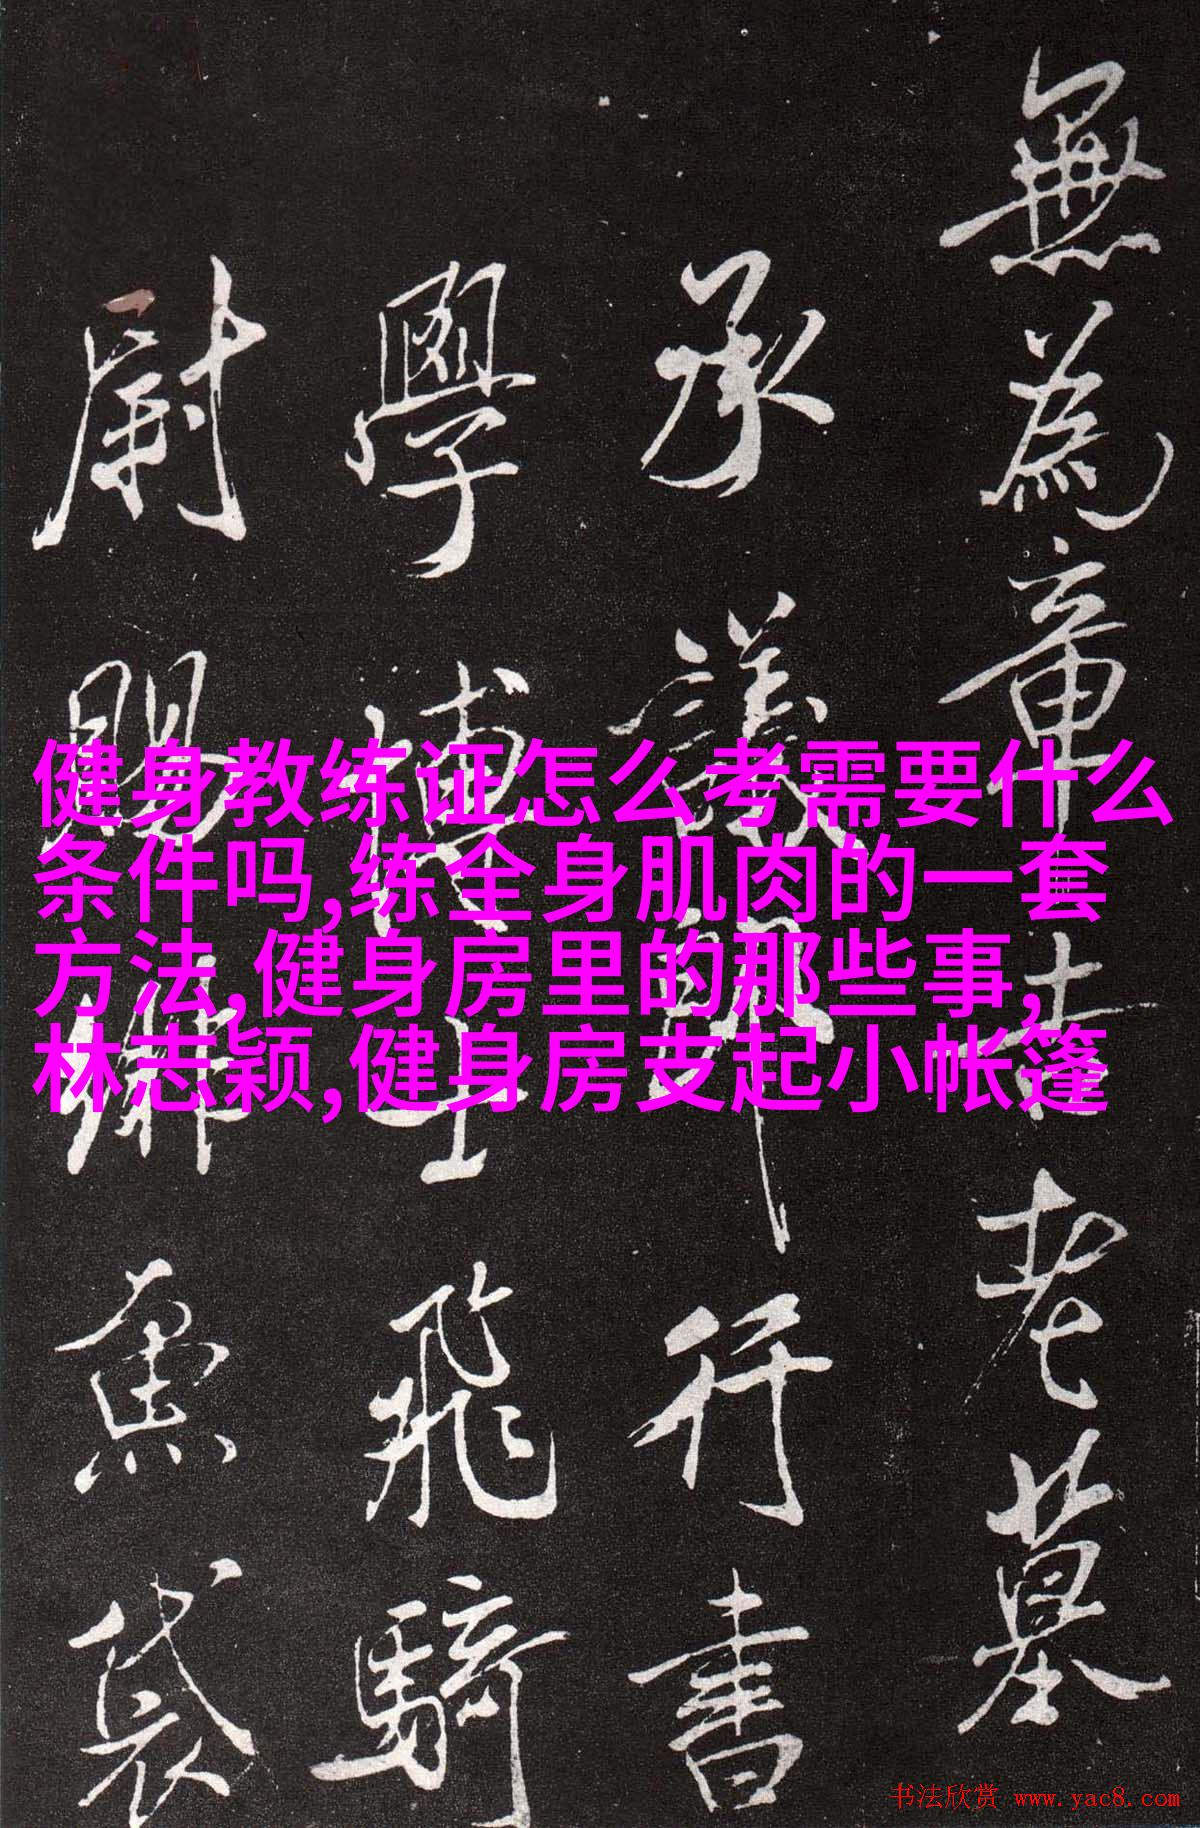 無為章吉老墓
承議郎行書
學博士飛騎
尉賜緋魚袋
健身教练证怎么考需要什么
条件吗,练全身肌肉的一套
方法,健身房里的那些事,
林志颖,健身房支起小帐篷
书法欣赏 www.yac8.com